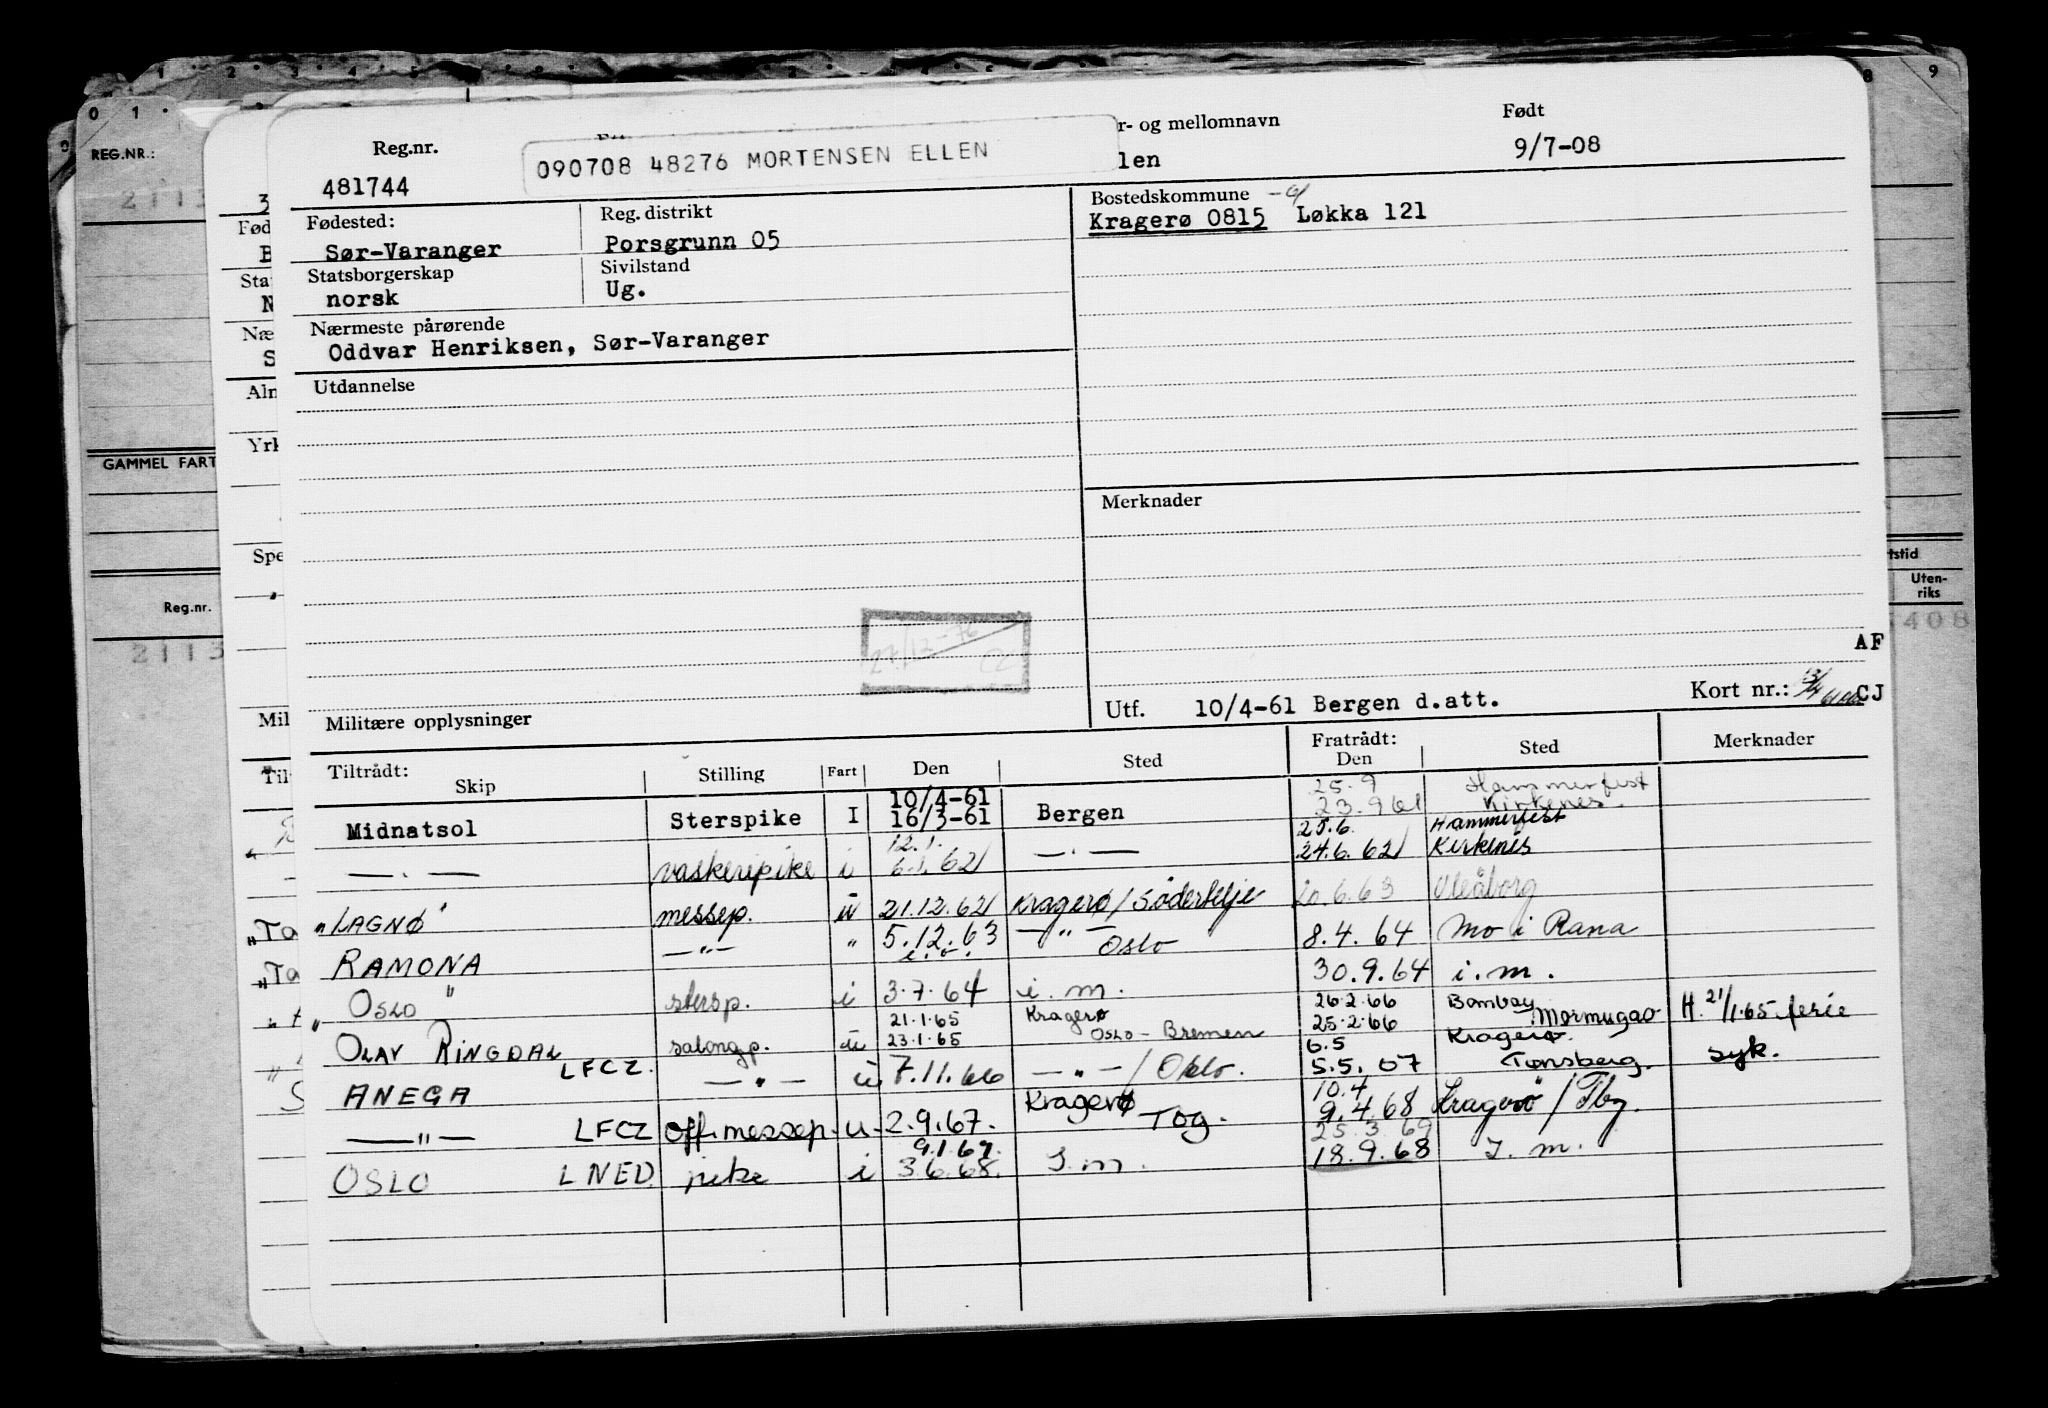 0 1
8 9
REG.NR.:
2113
GAMMEL FART
Reg.nr.
2113
Reg.nr.
481744
090708 48276 MORTENSEN ELLEN
r- og mellomnavn
len
Født
9/7-08
Fødested:
Sør-Varanger
Reg. distrikt
Porsgrunn 05
Bostedskommune
Kragerø 0815 Løkka 121
Statsborgerskap
norsk
Sivilstand
Ug.
Nærmeste pårørende
Oddvar Henriksen, Sør-Varanger
Utdannelse
Merknader
27/12-76
tstid
Uten-
riks
408
AF
Militære opplysninger
Utf. 10/4-61 Bergen d.att.
Kort nr.: CJ
Tiltrådt:
Skip Stilling Fart Den Sted Fratrådt: Den Sted Merknader
10/4-61 25.9 Hammerfest
Midnatsol Sterspike I 16/3-61 Bergen 23.9 61 Kirkenes
12.1. 25.6. Hammerfest
— . — vaskeripike i 6.1.62 — . — 24.6.62 Kirkenes
"LAGNØ" messep. u 21.12.62 Kragerø/Södertelje 20.6.63 Uleåborg
RAMONA — " — " 5.12.63 — " — Oslo 8.4.64 Mo i Rana
" Oslo " stersp. i 3.7.64 i.m. 30.9.64 i.m.
21.1.65 Kragerø 26.2.66 Bombay
OLAV RINGDAL salongp. u 23.1.65 Oslo - Bremen 25.2.66 Mormugao H. 21/1.65 ferie
6.5 Kragerø.
ANEGA LFCZ — " — u 7.11.66 — " — / Oslo. 5.5.67 Tønsberg. syk.
10.4
— " — LFCZ off.messep. u 2.9.67. Kragerø Tog. 9.4.68 Kragerø / Tbg.
9.1.69. 25.3.69
OSLO LNED pike i 3.6.68. I.m. 18.9.68 I.m.